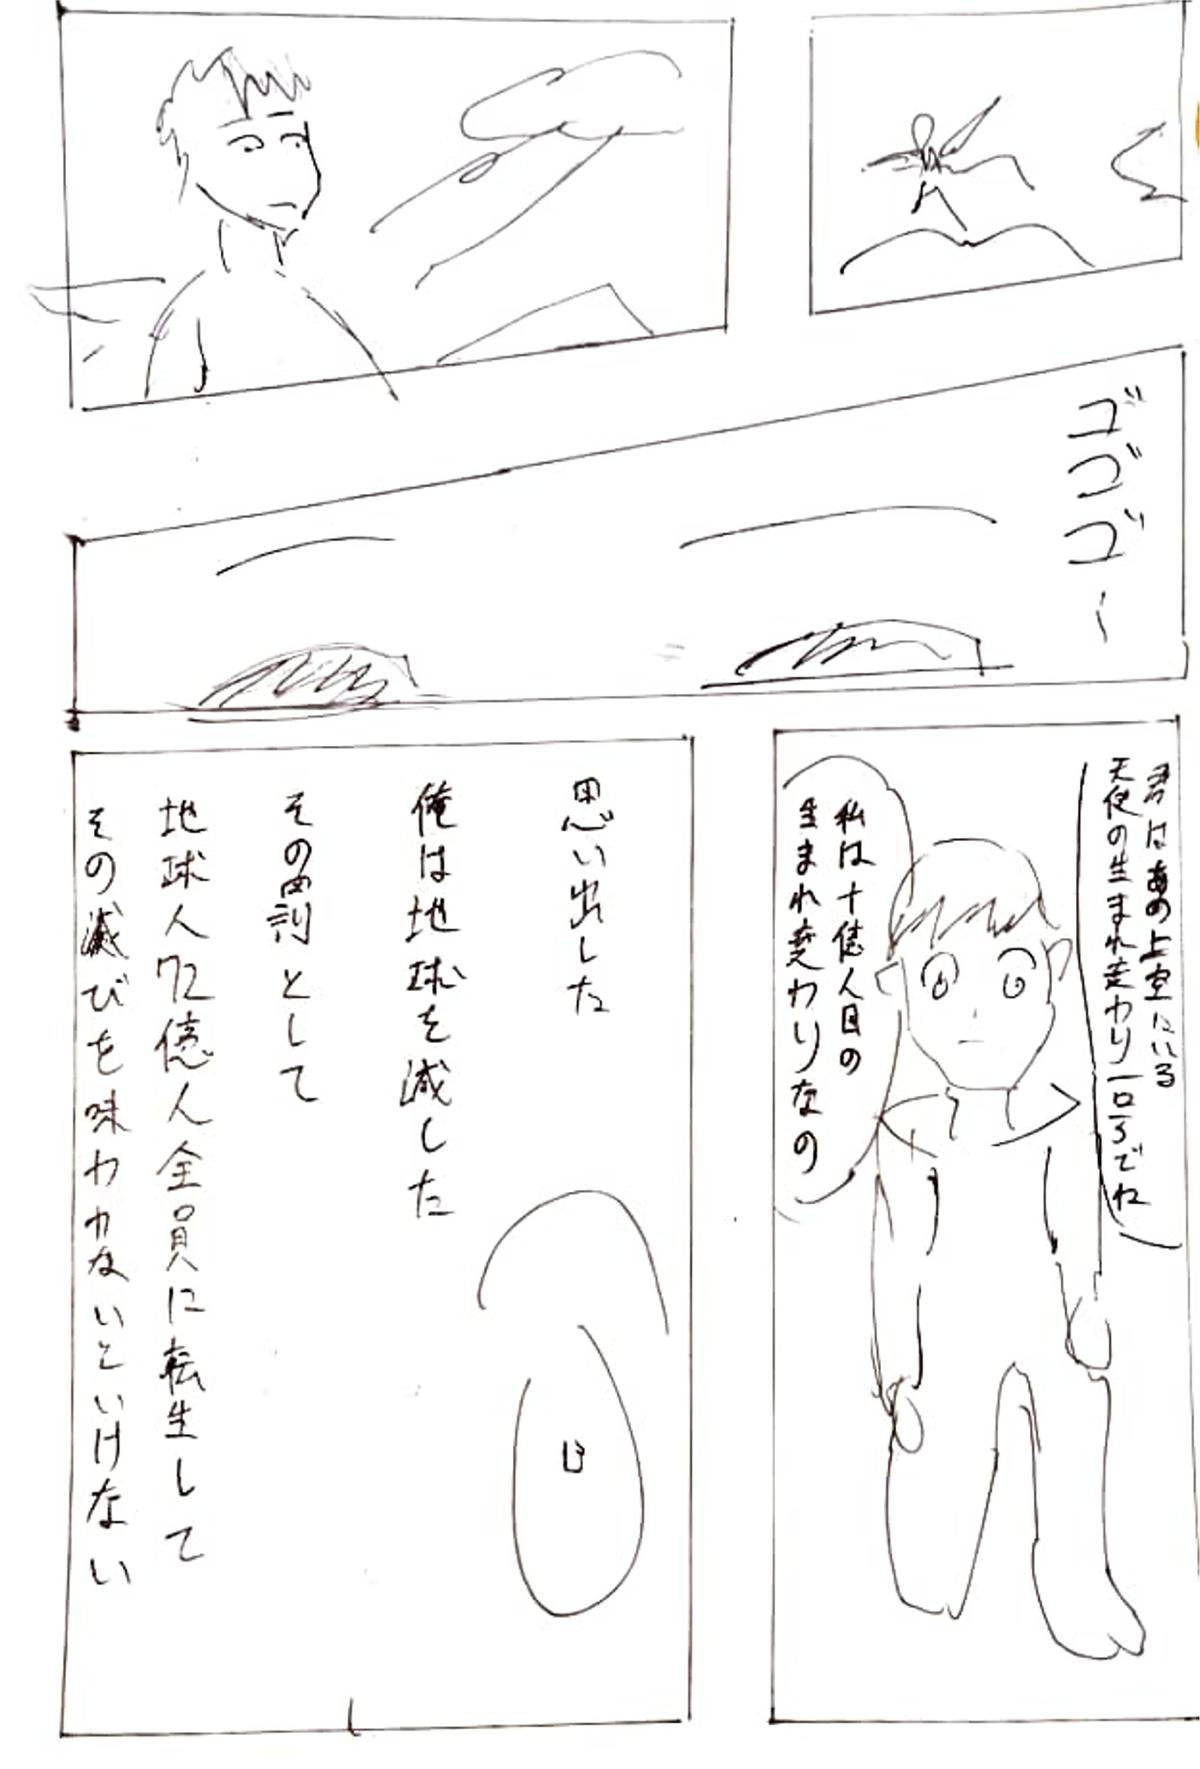 ゴゴゴ〜
君はあの上空にいる
天使の生まれ変わり一号でね
私は十億人目の
生まれ変わりなの
思い出した
俺は地球を滅した
その罰として
地球人72億人全員に転生して
その滅びを味わわないといけない